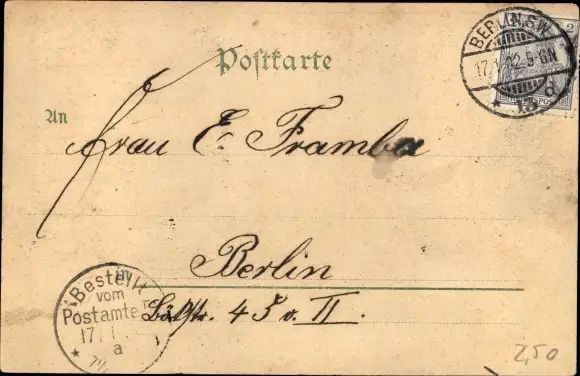 Postkarte
BERLIN, S.W.
17.1.02.5-6N
* 13 d
2
An
Frau E. Framba
Berlin
45 v. II.
Bestellt
vom
Postamte
17/1
* a
2,50